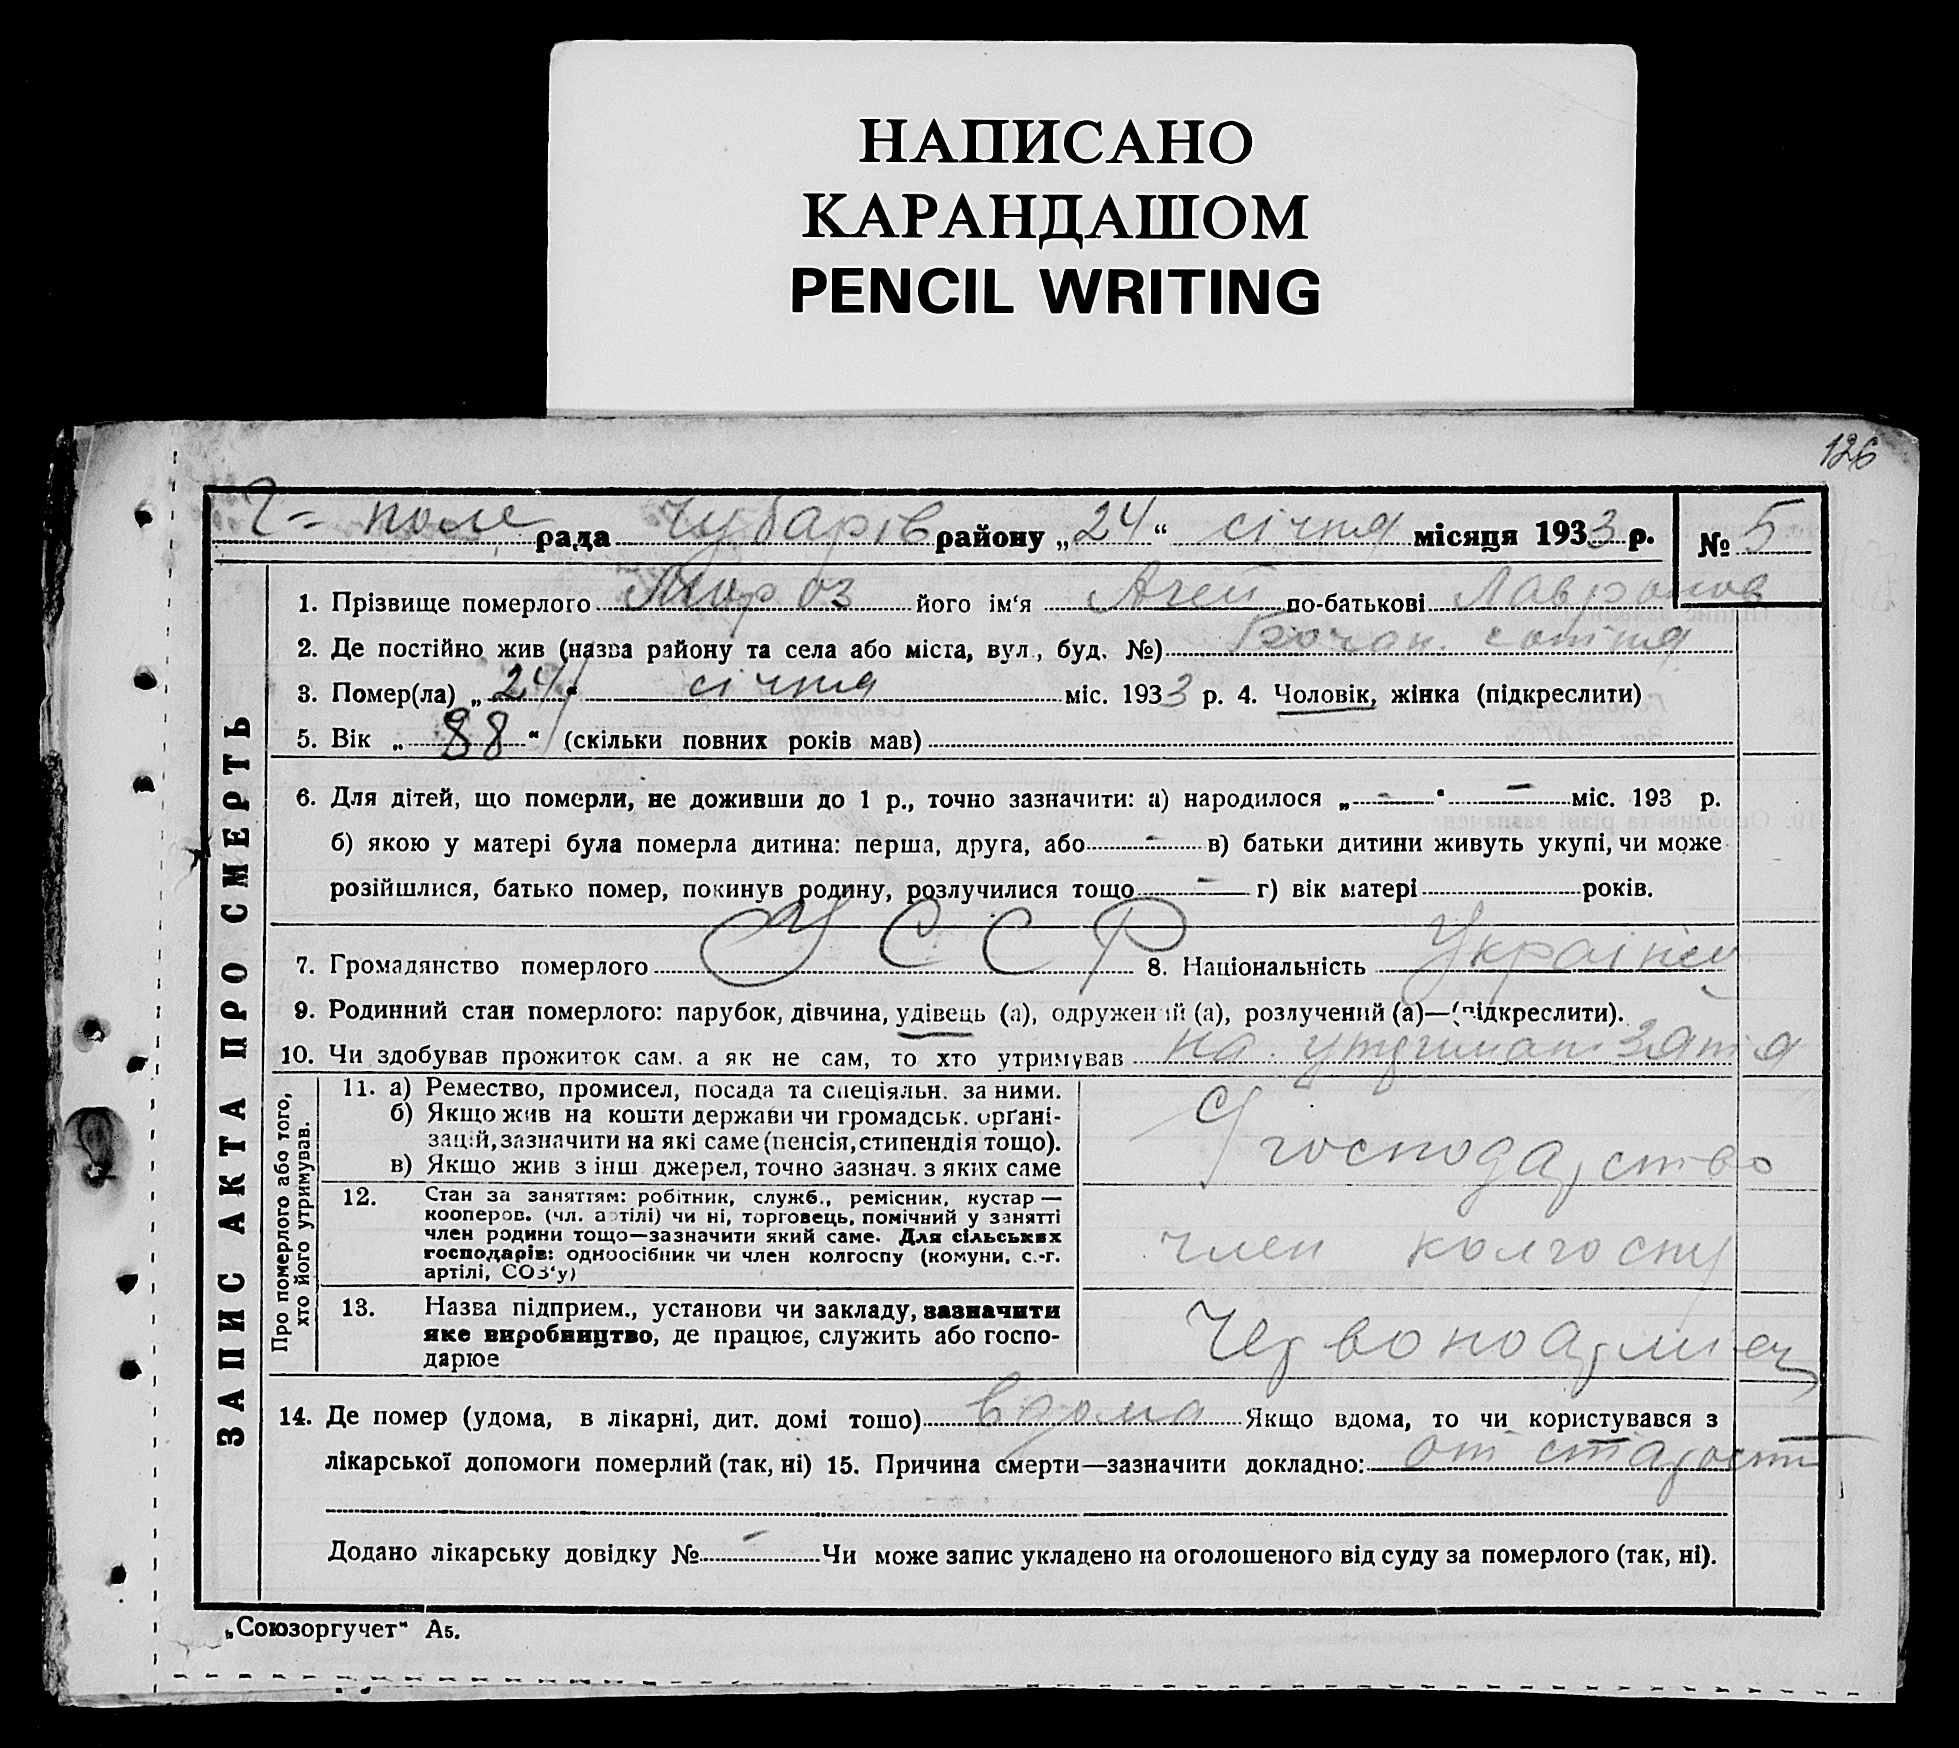 НАПИСАНО
КАРАНДАШОМ
PENCIL WRITING
126
Г-поле рада Чубарів району „24“ січня місяця 1933 р. № 5
ЗАПИС АКТА ПРО СМЕРТЬ
1. Прізвище померлого Мороз його ім‘я по-батькові Лавронов
2. Де постійно жив (назва району та села або міста, вул., буд. №) сотня
3. Помер(ла) „24“ січня міс. 1933 р. 4. Чоловік, жінка (підкреслити)
5. Вік „88“ (скільки повних років мав)
6. Для дітей, що померли, не доживши до 1 р., точно зазначити: а) народилося „-“ - міс. 193 р.
б) якою у матері була померла дитина: перша, друга, або - в) батьки дитини живуть укупі, чи може
розійшлися, батько помер, покинув родину, розлучилися тощо - г) вік матері років.
7. Громадянство померлого УССР 8. Національність Українец
9. Родинний стан померлого: парубок, дівчина, удівець (а), одружений (а), розлучений (а)—(підкреслити).
10. Чи здобував прожиток сам. а як не сам, то хто утримував на утриман зятя
Про померлого або того,
хто його утримував.
11. а) Ремество, промисел, посада та спеціяльн. за ними.
б) Якщо жив на кошти держави чи громадськ. орґані-
зацій, зазначити на які саме (пенсія, стипендія тощо).
в) Якщо жив з інш джерел, точно зазнач. з яких саме
С/господарство
12. Стан за заняттям: робітник, служб., ремісник, кустар —
кооперов. (чл. артілі) чи ні, торговець, помічний у занятті
член родини тощо—зазначити який саме. Для сільських
господарів: одноосібник чи член колгоспу (комуни, с.-г.
артілі, СОЗ‘у)
член колгоспу
13. Назва підприєм., установи чи закладу, зазначити
яке виробництво, де працює, служить або госпо-
дарює
Червоноармієц
14. Де помер (удома, в лікарні, дит. домі тошо) вдома Якщо вдома, то чи користувався з
лікарської допомоги померлий (так, ні) 15. Причина смерти—зазначити докладно: от старости
Додано лікарську довідку № - Чи може запис укладено на оголошеного від суду за померлого (так, ні).
„Союзоргучет“ А5.